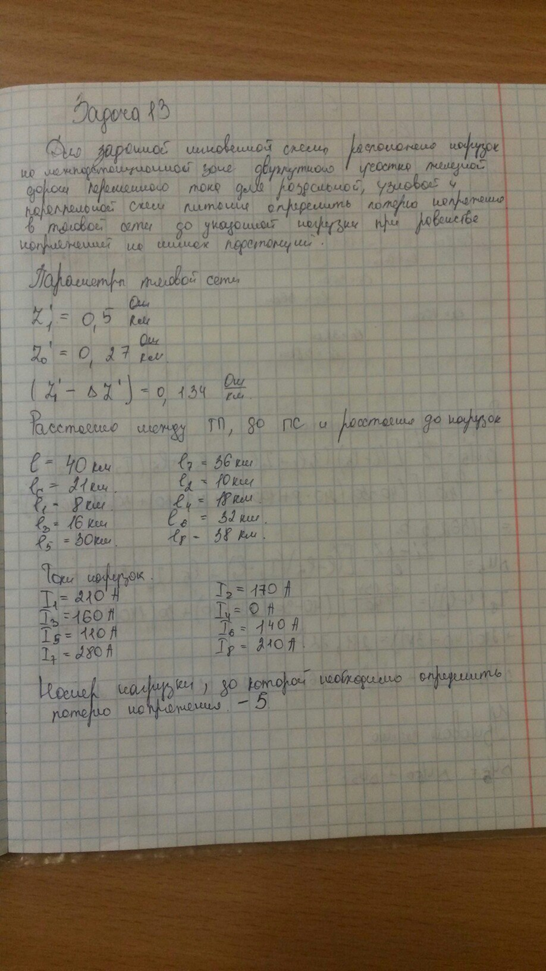 Задача 13
Для заданной мгновенной схемы расположения нагрузок
на межподстанционной зоне двухпутного участка железной
дороги переменного тока для раздельной, узловой и
параллельной схем питания определить потерю напряжения
в тяговой сети до указанной нагрузки при равенстве
напряжений на шинах подстанций.
Параметры тяговой сети
Z₁' = 0,5 Ом/км
Z₀' = 0,27 Ом/км
(Z₁' - ΔZ') = 0,134 Ом/км
Расстояние между ТП, до ПС и расстояния до нагрузок
l = 40 км l₇ = 36 км
lс = 21 км. l₂ = 10 км
l₁ = 8 км l₄ = 18 км
l₃ = 16 км l₆ = 32 км
l₅ = 30 км. l₈ = 38 км.
Токи нагрузок.
I₁ = 210 А I₂ = 170 А
I₃ = 160 А I₄ = 0 А
I₅ = 110 А I₆ = 140 А
I₇ = 280 А I₈ = 210 А.
Номер нагрузки, до которой необходимо определить
потерю напряжения - 5